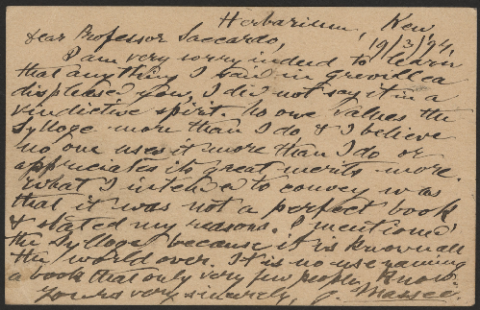 Herbarium, Kew,
Dear Professor Saccardo, 19/3/94.
I am very sorry indeed to learn
that anything I said in Grevillea
displeased you, I did not say it in a
vindictive spirit. No one values the
Sylloge more than I do & I believe
no one uses it more than I do or
appreciates its great merits more.
What I intended to convey was
that it was not a perfect book
& stated my reasons. I mentioned
the Sylloge because it is known all
the world over. It is no use naming
a book that only very few people know.
Yours very sincerely, G. Massee.